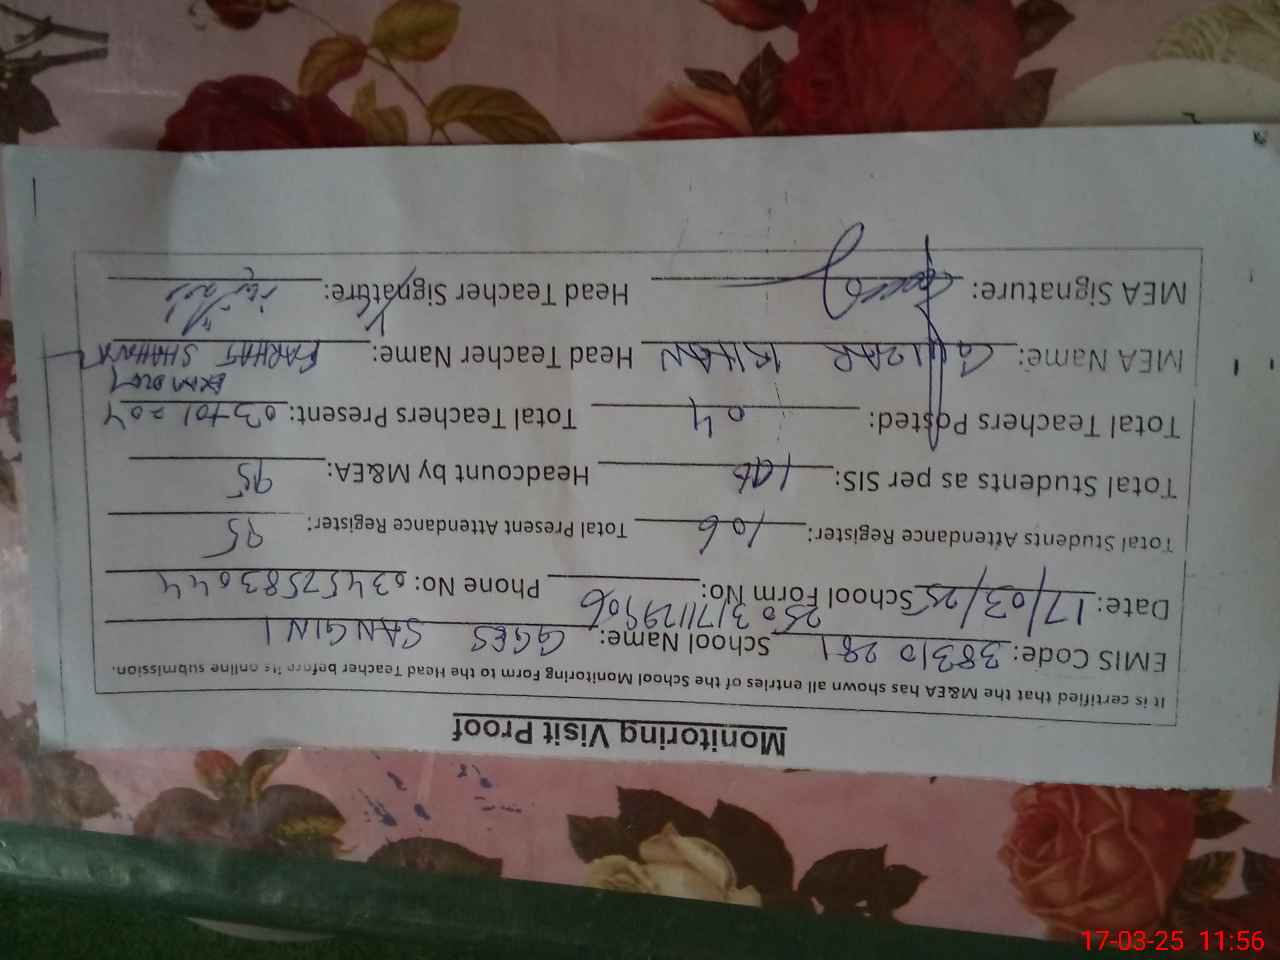 Monitoring Visit Proof
It is certified that the M&EA has shown all entries of the School Monitoring Form to the Head Teacher before its online submission.
EMIS Code: 38310281 School Name: GGES SANGINI
Date: 17/03/25 School Form No: 2503171129906 Phone No: 03457583044
Total Students Attendance Register: 106 Total Present Attendance Register: 95
Total Students as per SIS: 106 Headcount by M&EA: 95
Total Teachers Posted: 04 Total Teachers Present: 03+01=04
EXM Duty
MEA Name: GULZAR KHAN Head Teacher Name: FARHAT
MEA Signature: Head Teacher Signature:
17-03-25 11:56